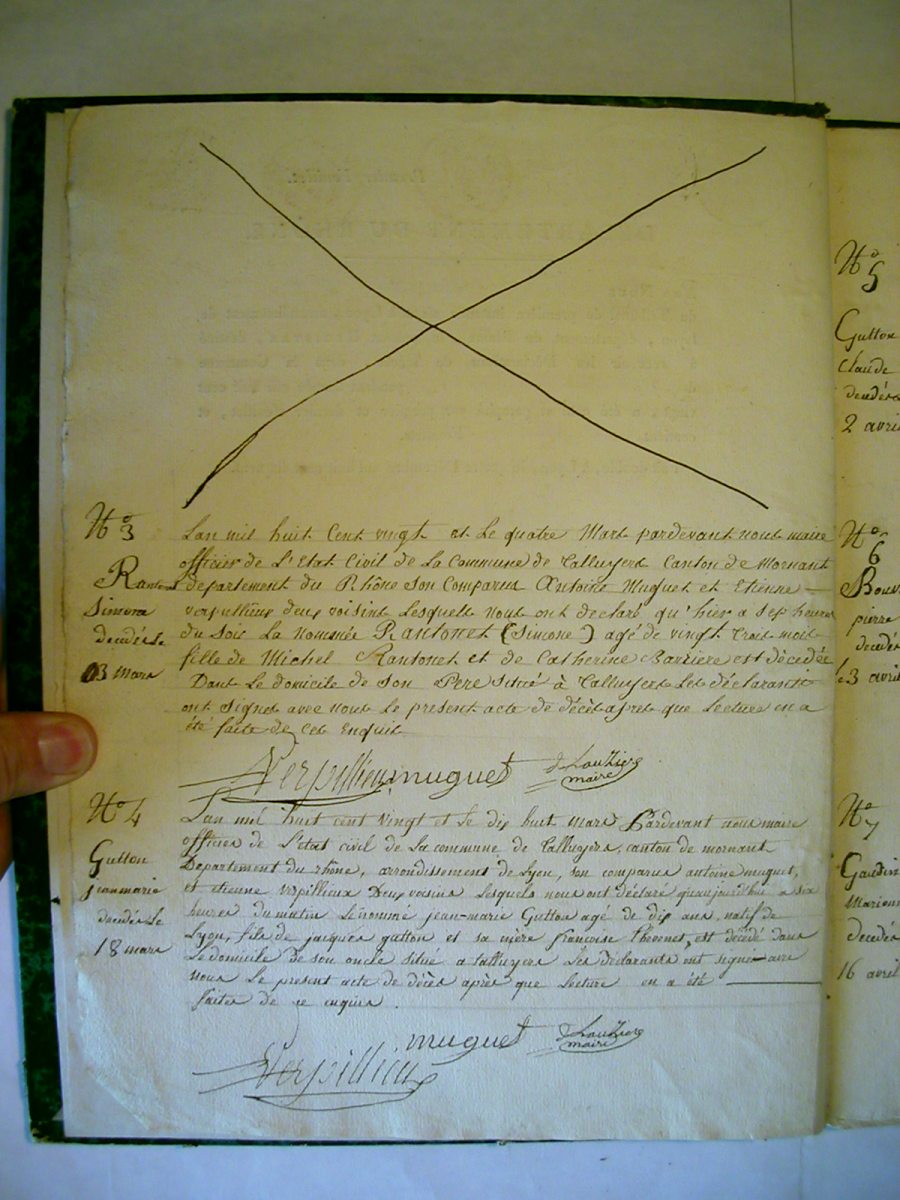 N° 3
Rantonet
Simone
decédée le
3 mars
Lan mil huit Cent vingt et Le quatre Mars pardevant nous maire
officier de L'Etat Civil de La Commune de Talluyers Canton de Mornant
departement du Rhône Son Comparus Antoine Muguet et Etienne
verpillieux deux voisins Lesquels nous ont déclaré qu'hier a sept heures
du soir La nommée Rantonet (Simone) agé de vingt trois mois
fille de Michel Rantonet et de Catherine Barriere est décedée
Dans Le domicile de Son Pere situé à Talluyers Les déclarants
ont signés avec nous Le present acte de décès après que Lecture en a
été faite de Cet Enquis
Verpillieux muguet
maire
N° 4
Gutton
jean marie
decédé le
18 mars
L'an mil huit cent vingt et Le dix huit mars Pardevant nous maire
officier de L'état civil de La commune de Talluyers, canton de mornant
Département du rhône, arrondissement de Lyon, son comparus antoine muguet,
et etienne verpillieux Deux voisins Lesquels nous ont déclaré qu'aujourd'hui a six
heures du matin Le nommé jean-marie Gutton agé de dix ans, natif de
Lyon, fils de jacques gutton et sa mère françoise Thevenet, est décédé dans
Le domicile de son oncle situé a talluyers Les déclarants ont signer avec
nous Le present acte de décès après que Lecture en a été
faites de ce enquis.
muguet
maire
Verpillieux
N° 5
Gutton
Claude
decédé
2 avril
N° 6
pierre
decédé
3 avril
N° 7
Gaudin
decédé
16 avril